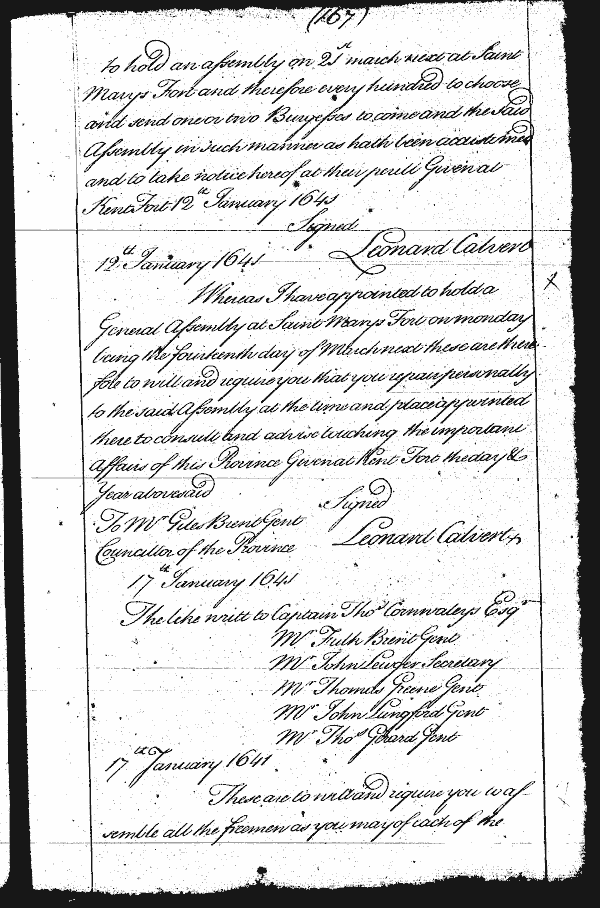 (167)
to hold an assembly on 21st march next at Saint
Marys Fort and therefore every hundred to choose
and send one or two Burgesses to come and the said
Assembly in such manner as hath been accustomed
and to take notice hereof at their perill Given at
Kent Fort 12th January 1641
Signed
Leonard Calvert
12th January 1641
Whereas I have appointed to hold a
General Assembly at Saint Marys Fort on monday
being the fourteenth day of March next these are there
fore to will and require you that you repair personally
to the said Assembly at the time and place appointed
there to consult and advise touching the important
affairs of this Province Given at Kent Fort the day &
Year abovesaid
Signed
To Mr Giles Brent Gent
Leonard Calvert
Councillor of the Province
17th January 1641
The like writt to Captain Thos Cornwaleys Esqr
Mr Fulk Brent Gent
Mr John Lewger Secretary
Mr Thomas Greene Gent
Mr John Langford Gent
Mr Thos Gerard Gent
17th January 1641
These are to will and require you to as
semble all the freemen as you may of each of the